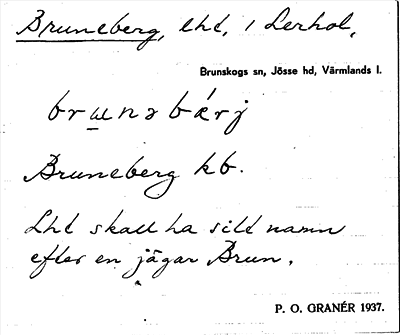 Bruneberg, lht, i Lerhol,
Brunskogs sn, Jösse hd, Värmlands l.
brunəbérj
Bruneberg kb.
Lht skall ha sitt namn
efter en jägar Brun.
P. O. GRANÉR 1937.